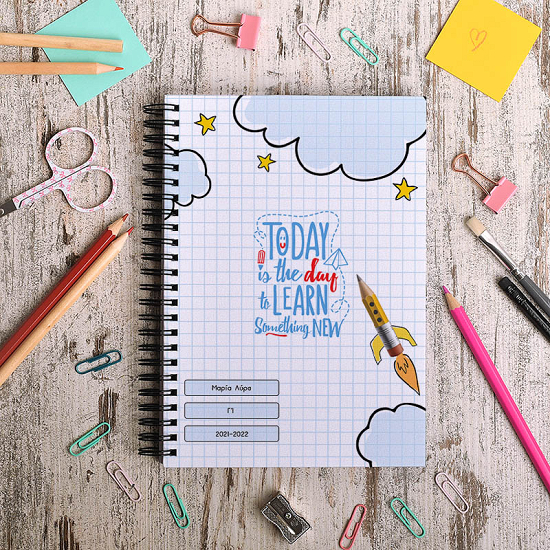 TODAY
is the day
to LEARN
Something NEW
Μαρία Λύρα
Γ1
2021-2022